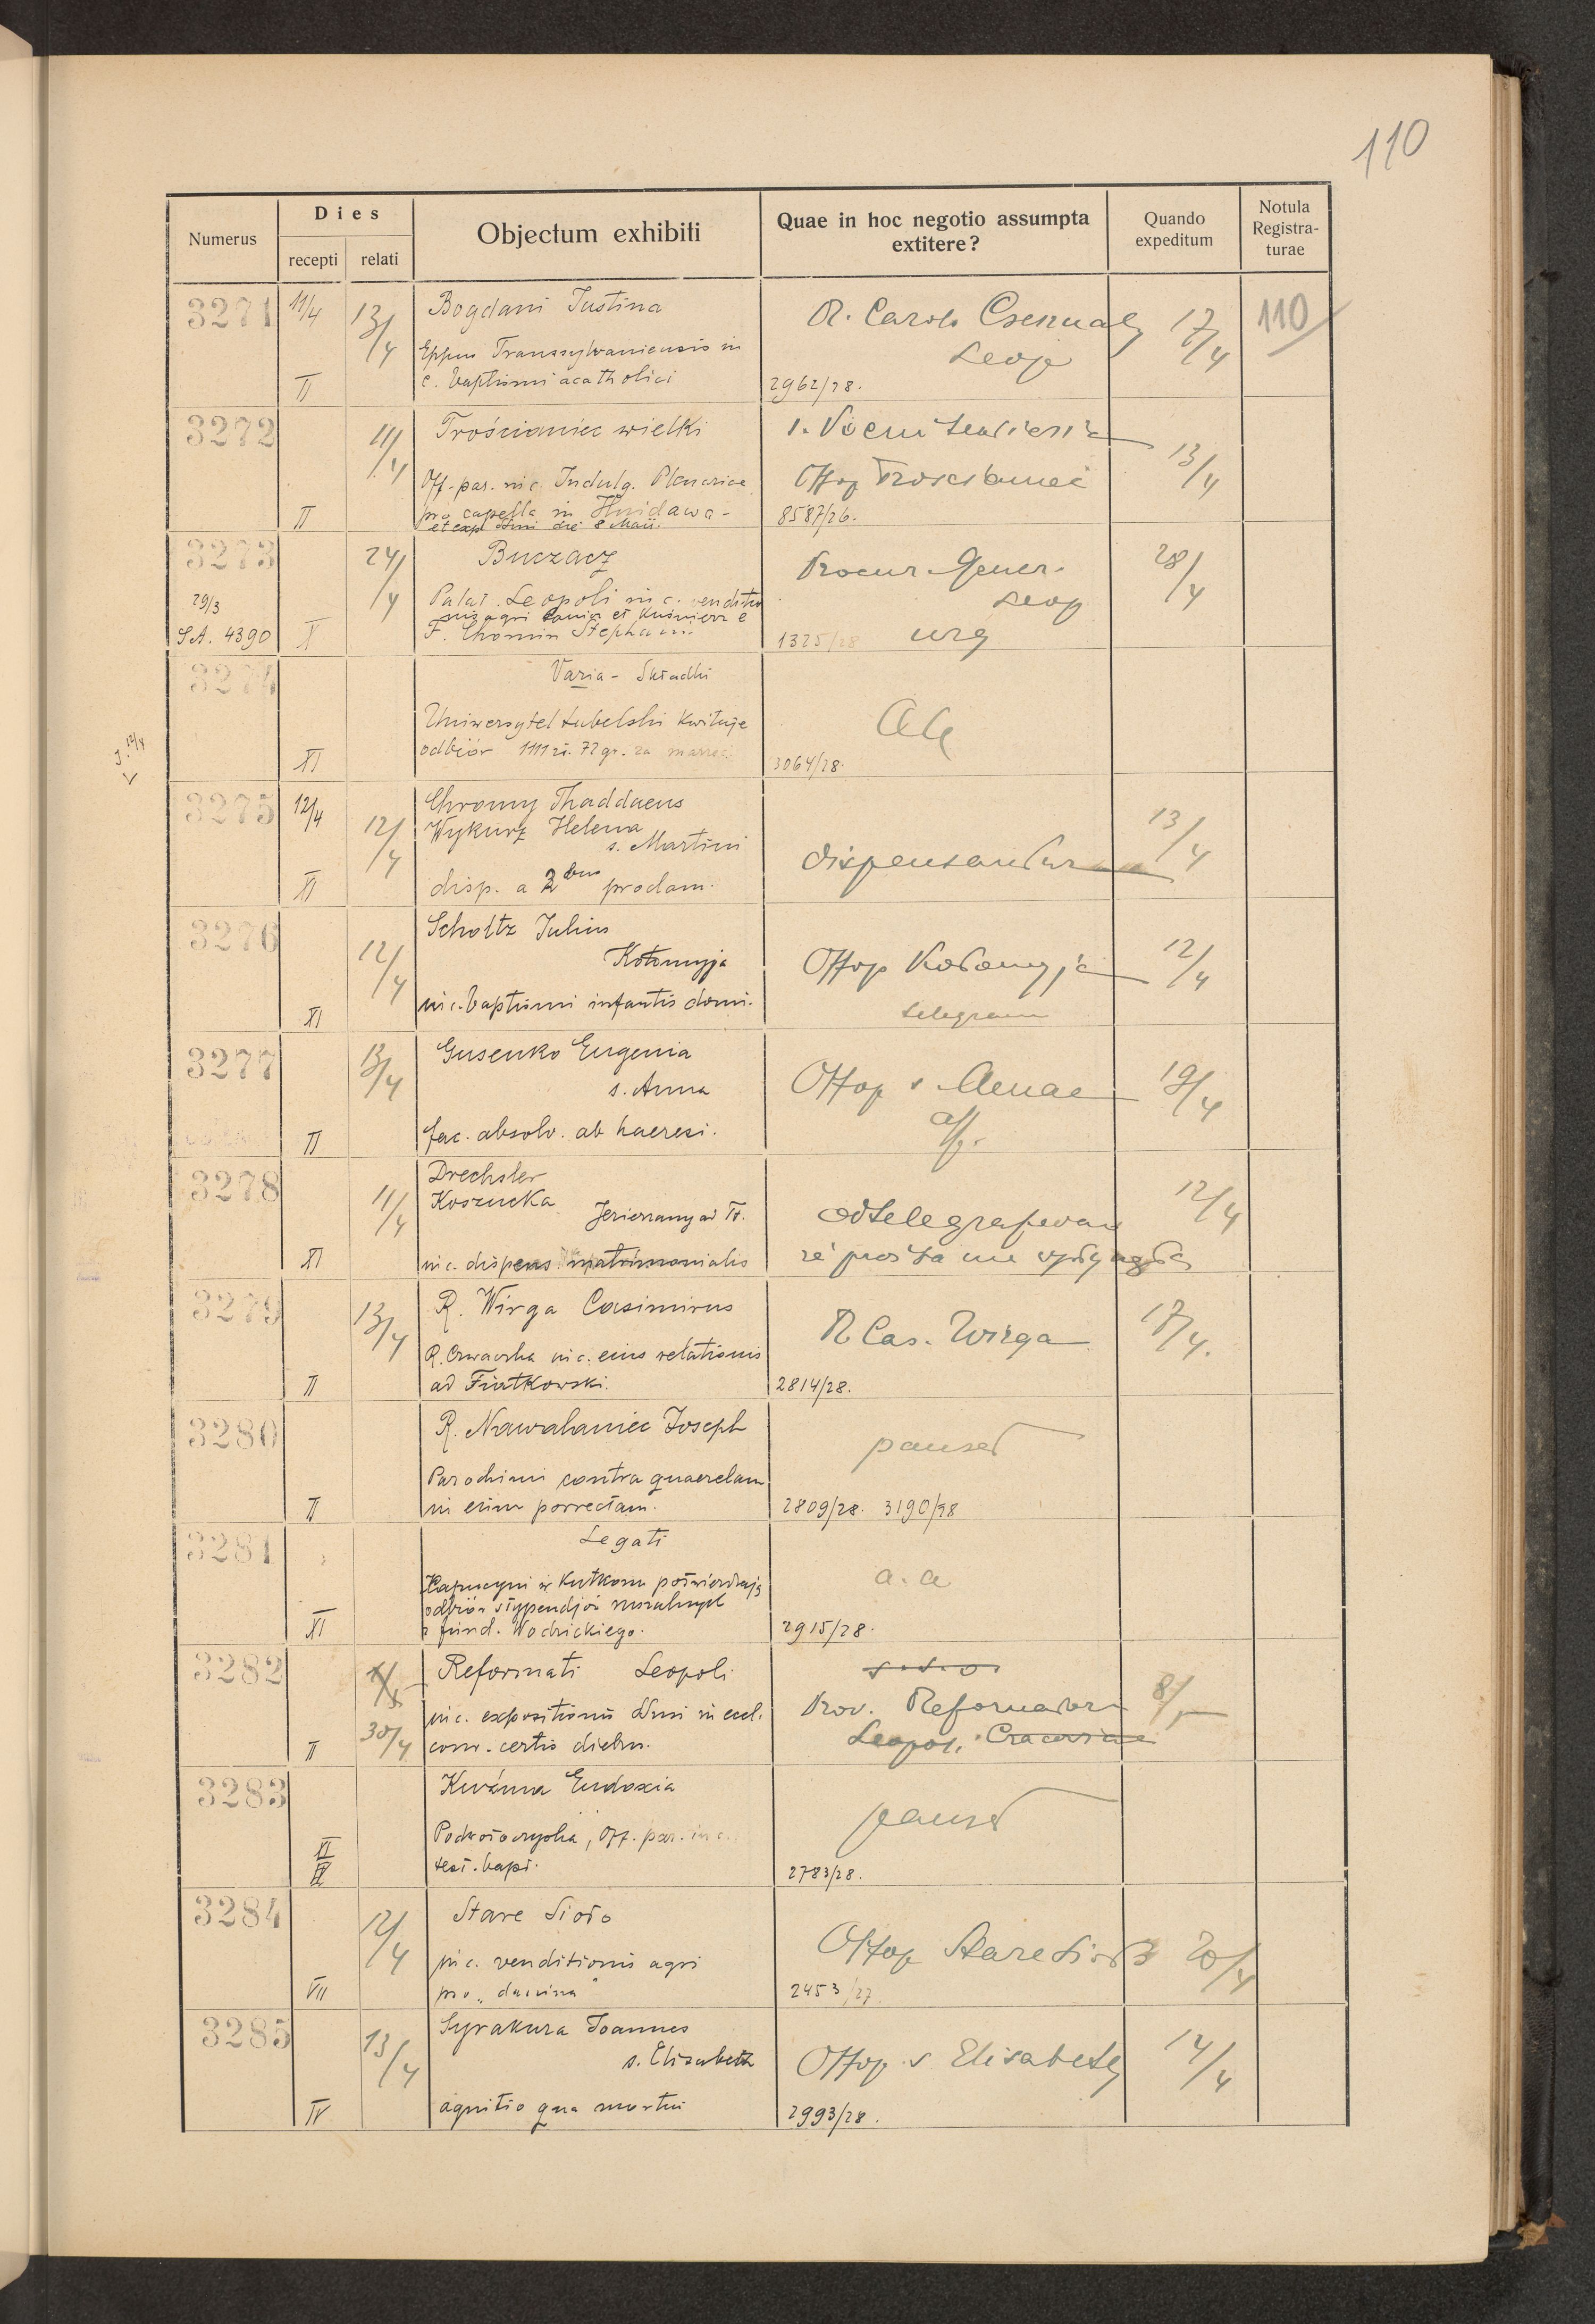 110
Numerus
Dies
recepti
relati
Objectum exhibiti
Quae in hoc negotio assumpta
extitere?
Quando
expeditum
Notula
Registra-
turae
3271
11/4
13/4
II
Bogdani Justina
Eppus Transsylvaniensis in
c. baptismi acatholici
R. Carolo
Leop
2962/28.
17/4
110
3272
11/4
II
Trościaniec wielki
Off. par. in c. Indulg. Plenariae
pro capella in Hnidawa -
et exp. die 8 Maii.
Offop Trościaniec
8587/26.
13/4
3273
29/3
SA. 4390
24/4
X
Buczacz
Palat. Leopoli in c. venditio
agri et
F. Chomin Stephan
Procur. Gener.
Leop
urg
1325/28
28/4
3274
XI
Varia - Składki
Uniwersytet Lubelski kwituje
odbiór 1111 zł. 72 gr. za
3064/28.
3275
12/4
12/4
XI
Chromy Thaddaeus
Wykurz Helena
s. Martini
disp. a 2bus proclam.
dispensantur
13/4
3276
12/4
XI
Scholtz Julius
Kołomyja
in c. baptismi infantis domi.
Offop Kołomyja
telegram
12/4
3277
13/4
II
Gusenko Eugenia
s. Anna
fac. absolv. ab haeresi.
Offop s. Annae
aff.
19/4
3278
11/4
XI
Drechsler
Koszucka
in c. dispens. matrimonialis
odtelegrafowano
że prośba nie
12/4
3279
13/4
II
R. Wirga Casimirus
in c. eius relationis
ad Fiutkowski.
R. Cas. Wirga
2814/28.
17/4.
3280
II
R. Nawalaniec Joseph
Parochiani contra quaerelam
in eum porrectam.
pauset
2809/28. 3190/28
3281
XI
Legati
Kapucyni w Kutkorzu potwierdzają
odbiór stypendjów mszalnych
z fund. Wodzickiego.
a. a
2915/28.
3282
30/4
II
Reformati Leopoli
in c. expositionis in eccl.
conv. certis diebus.
Prov. Reformator
Leopol. Cracoviae
3283
VI
Kuźma Eudoxia
Podwołoczyska, Off. par. in c.
test. bapt.
pauset
2783/28.
3284
12/4
VII
Stare Sioło
in c. venditionis agri
pro „danina"
Offop Stare Sioło
2453/27.
20/4
3285
13/4
IV
Syrakuza Joannes
s. Elisabeth
agnitio qua mortui
Offop s Elisabeth
2993/28.
14/4